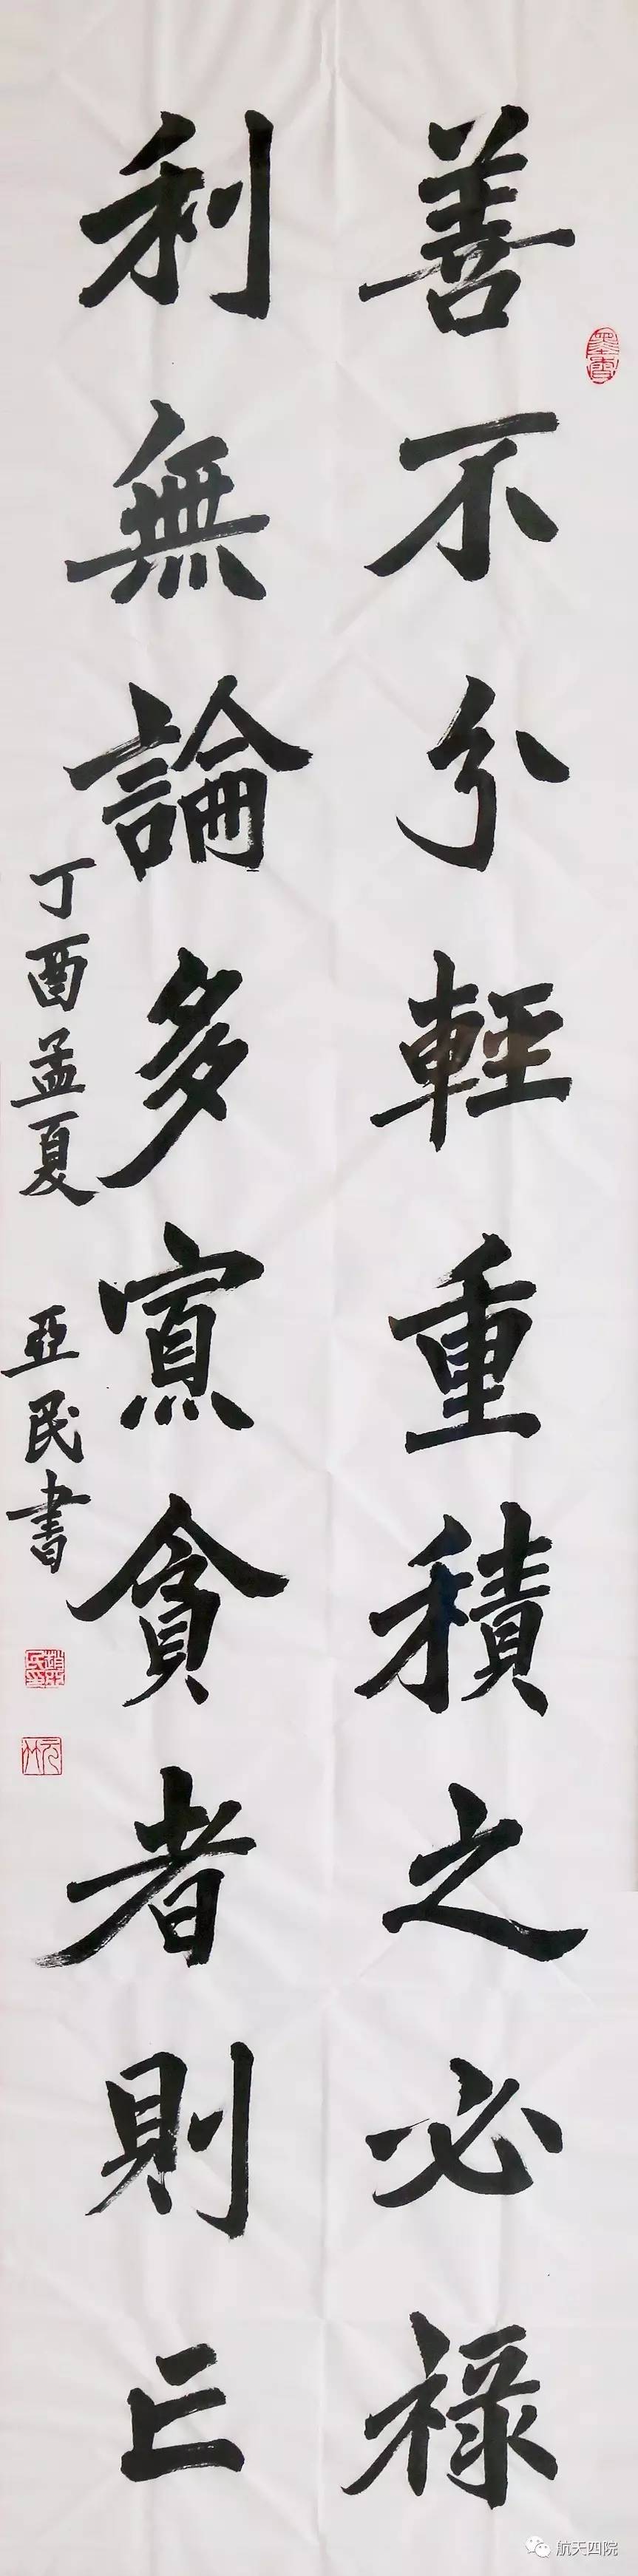 善不分輕重積之必祿
利無論多寡貪者則亡
丁酉孟夏 亞民書
墨雲
航天四院